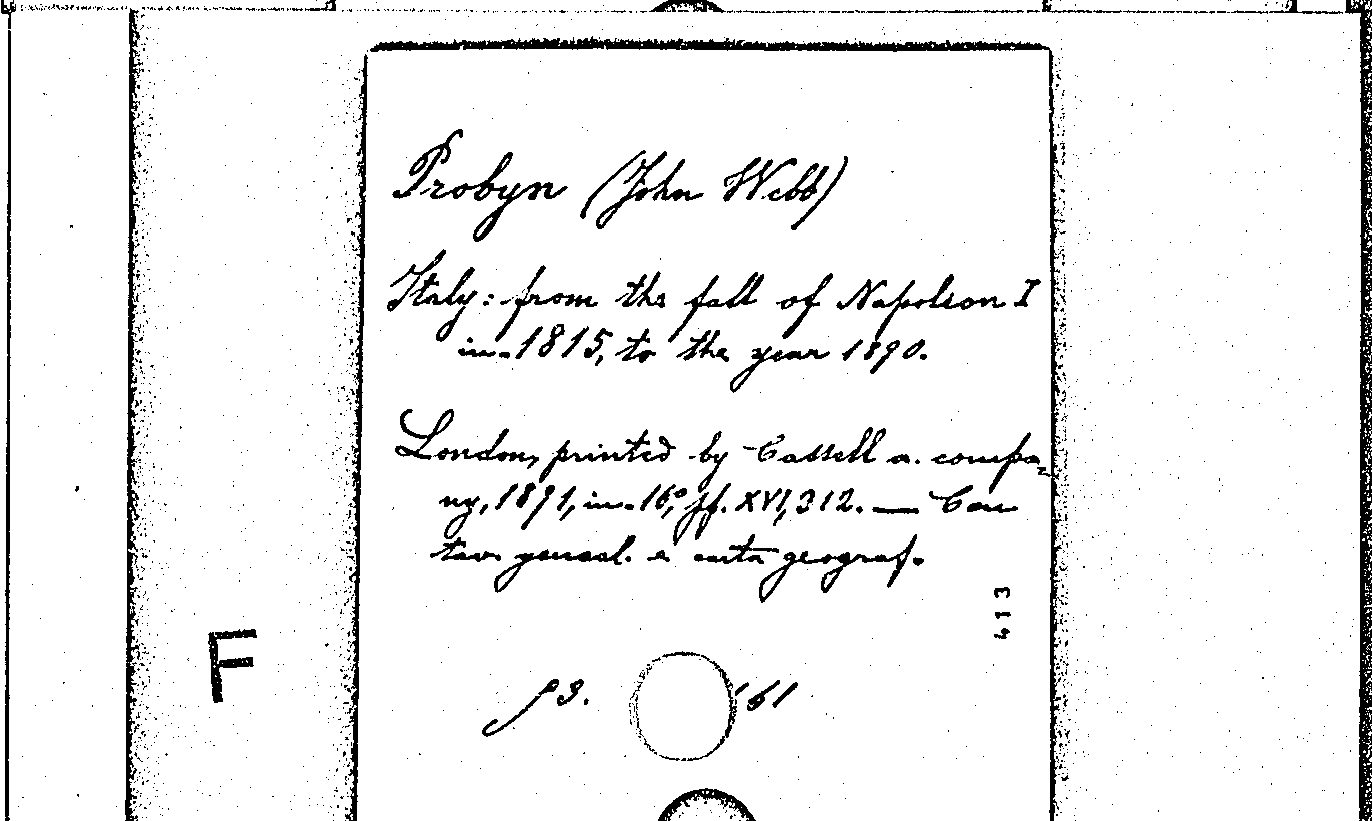 Probyn (John Webb)
Italy: from the fall of Napoleon I
in 1815, to the year 1890.
London, printed by Cassell a. compa-
ny, 1891, in-16°, pp. XVI, 312. — Con
tav. geneal. e carta geograf.
413
F
3. 161